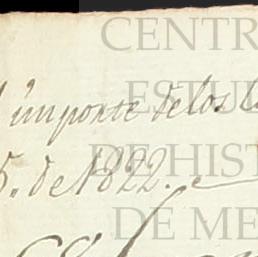 CENTR
ESTU
l'importe de los
DE HIST
5. de 1822.
DE ME